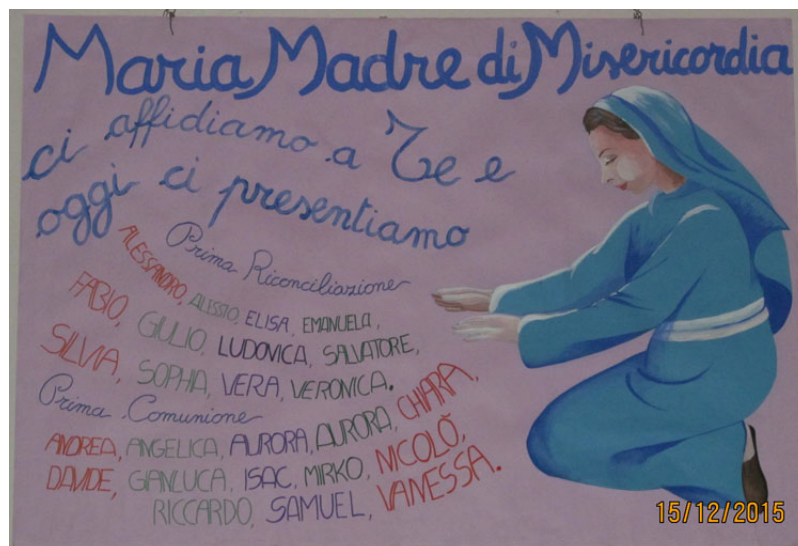 Maria Madre di Misericordia
ci affidiamo a Te e
oggi ci presentiamo
Prima Riconciliazione
ALESSANDRO, ALESSIO, ELISA, EMANUELA,
FABIO, GIULIO, LUDOVICA, SALVATORE,
SILVIA, SOPHIA, VERA, VERONICA.
Prima Comunione
ANDREA, ANGELICA, AURORA, AURORA, CHIARA,
DAVIDE, GIANLUCA, ISAC, MIRKO, NICOLÒ,
RICCARDO, SAMUEL, VANESSA.
15/12/2015